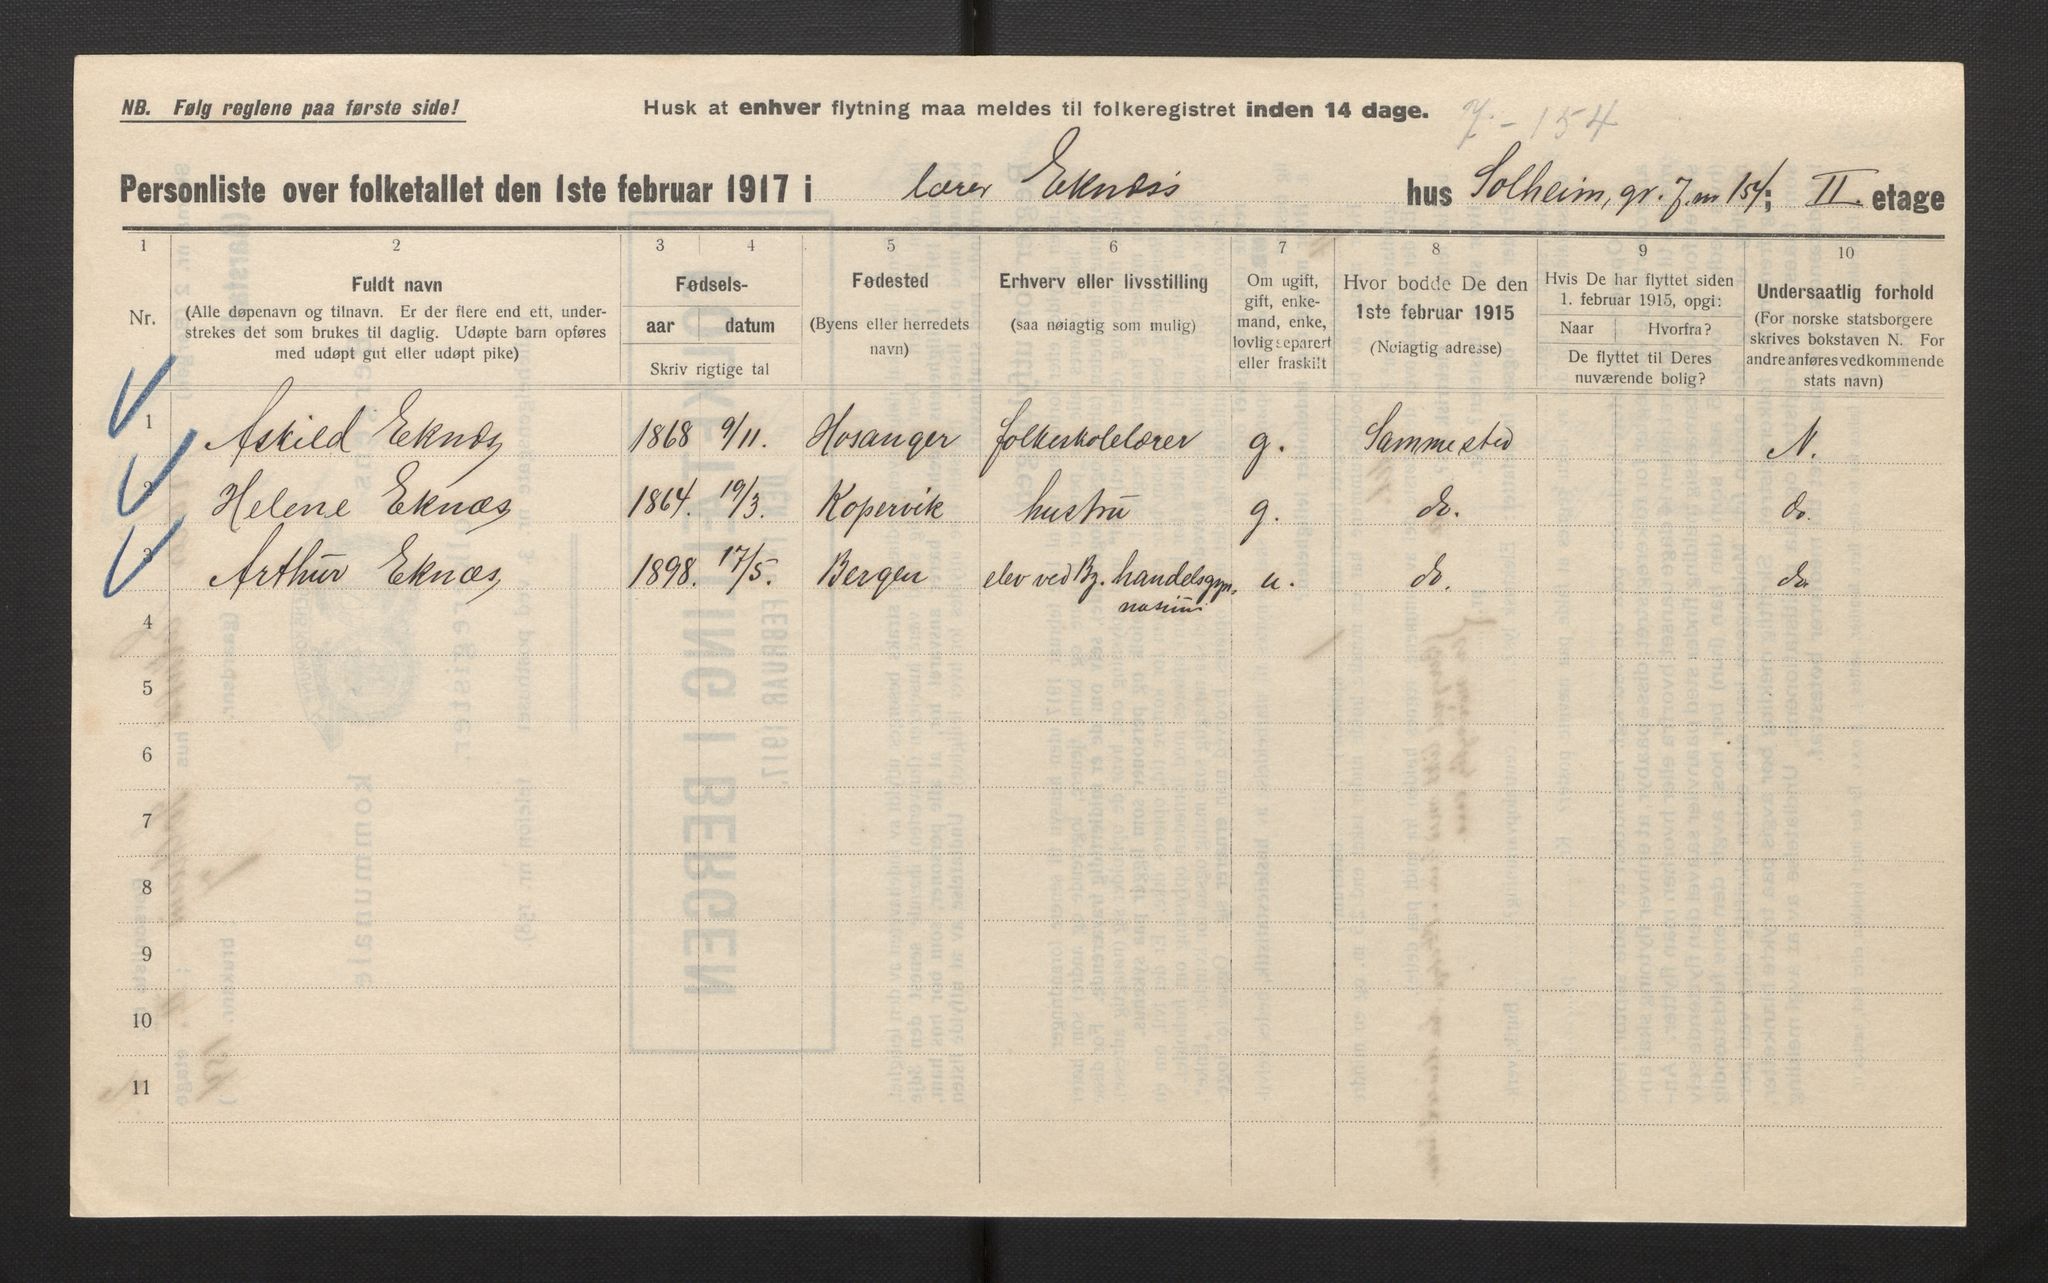 NB. Følg reglene paa første side!
Husk at enhver flytning maa meldes til folkeregistret inden 14 dage.
7-154
Personliste over folketallet den 1ste februar 1917 i lærer Eknæs's hus Solheim, gr. 7. m 154; II. etage
1 2 3 4 5 6 7 8 9 10
Nr.
Fuldt navn
(Alle døpenavn og tilnavn. Er der flere end ett, under-
strekes det som brukes til daglig. Udøpte barn opføres
med udøpt gut eller udøpt pike)
Fødsels-
aar datum
Skriv rigtige tal
Fødested
(Byens eller herredets
navn)
Erhverv eller livsstilling
(saa nøiagtig som mulig)
Om ugift,
gift, enke-
mand, enke,
lovlig separert
eller fraskilt
Hvor bodde De den
1ste februar 1915
(Nøiagtig adresse)
Hvis De har flyttet siden
1. februar 1915, opgi:
Naar Hvorfra?
De flyttet til Deres
nuværende bolig?
Undersaatlig forhold
(For norske statsborgere
skrives bokstaven N. For
andre anføres vedkommende
stats navn)
1 Askild Eknæs 1868 9/11. Hosanger folkeskolelærer g. Sammested N.
2 Helene Eknæs 1864. 19/3. Kopervik hustru g. do. do.
3 Arthur Eknæs 1898. 17/5. Bergen elev ved Bg. handelsgym- u. do. do.
nasium
4
5
6
7
8
9
10
11